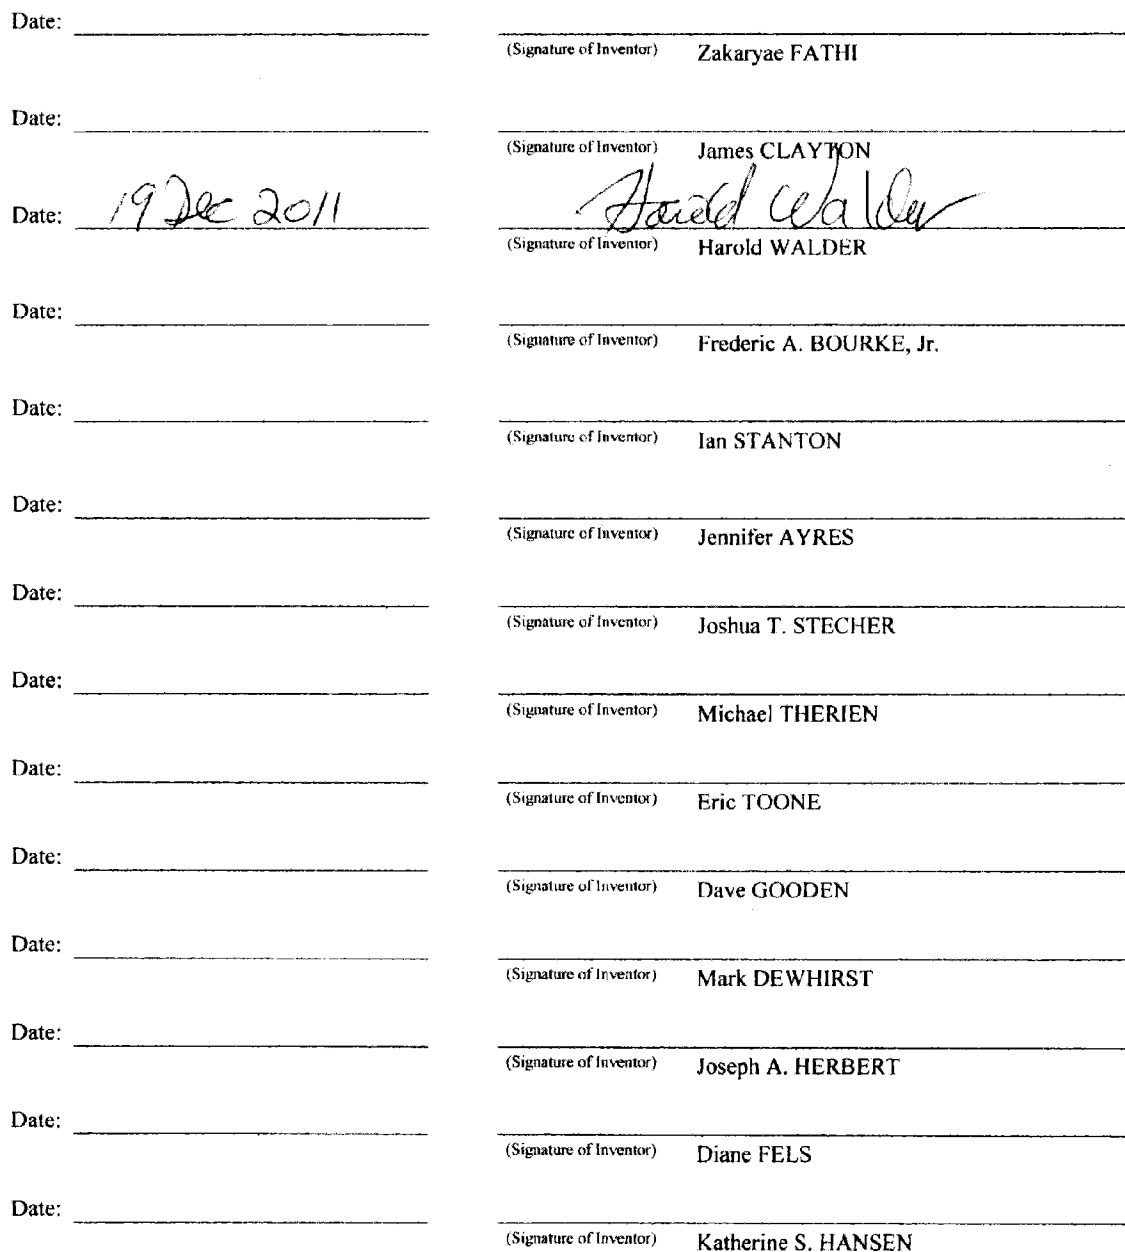 Date:
(Signature of Inventor) Zakaryae FATHI
Date:
(Signature of Inventor) James CLAYTON
Date: 19 Dec 2011 Harold Walder
(Signature of Inventor) Harold WALDER
Date:
(Signature of Inventor) Frederic A. BOURKE, Jr.
Date:
(Signature of Inventor) Ian STANTON
Date:
(Signature of Inventor) Jennifer AYRES
Date:
(Signature of Inventor) Joshua T. STECHER
Date:
(Signature of Inventor) Michael THERIEN
Date:
(Signature of Inventor) Eric TOONE
Date:
(Signature of Inventor) Dave GOODEN
Date:
(Signature of Inventor) Mark DEWHIRST
Date:
(Signature of Inventor) Joseph A. HERBERT
Date:
(Signature of Inventor) Diane FELS
Date:
(Signature of Inventor) Katherine S. HANSEN